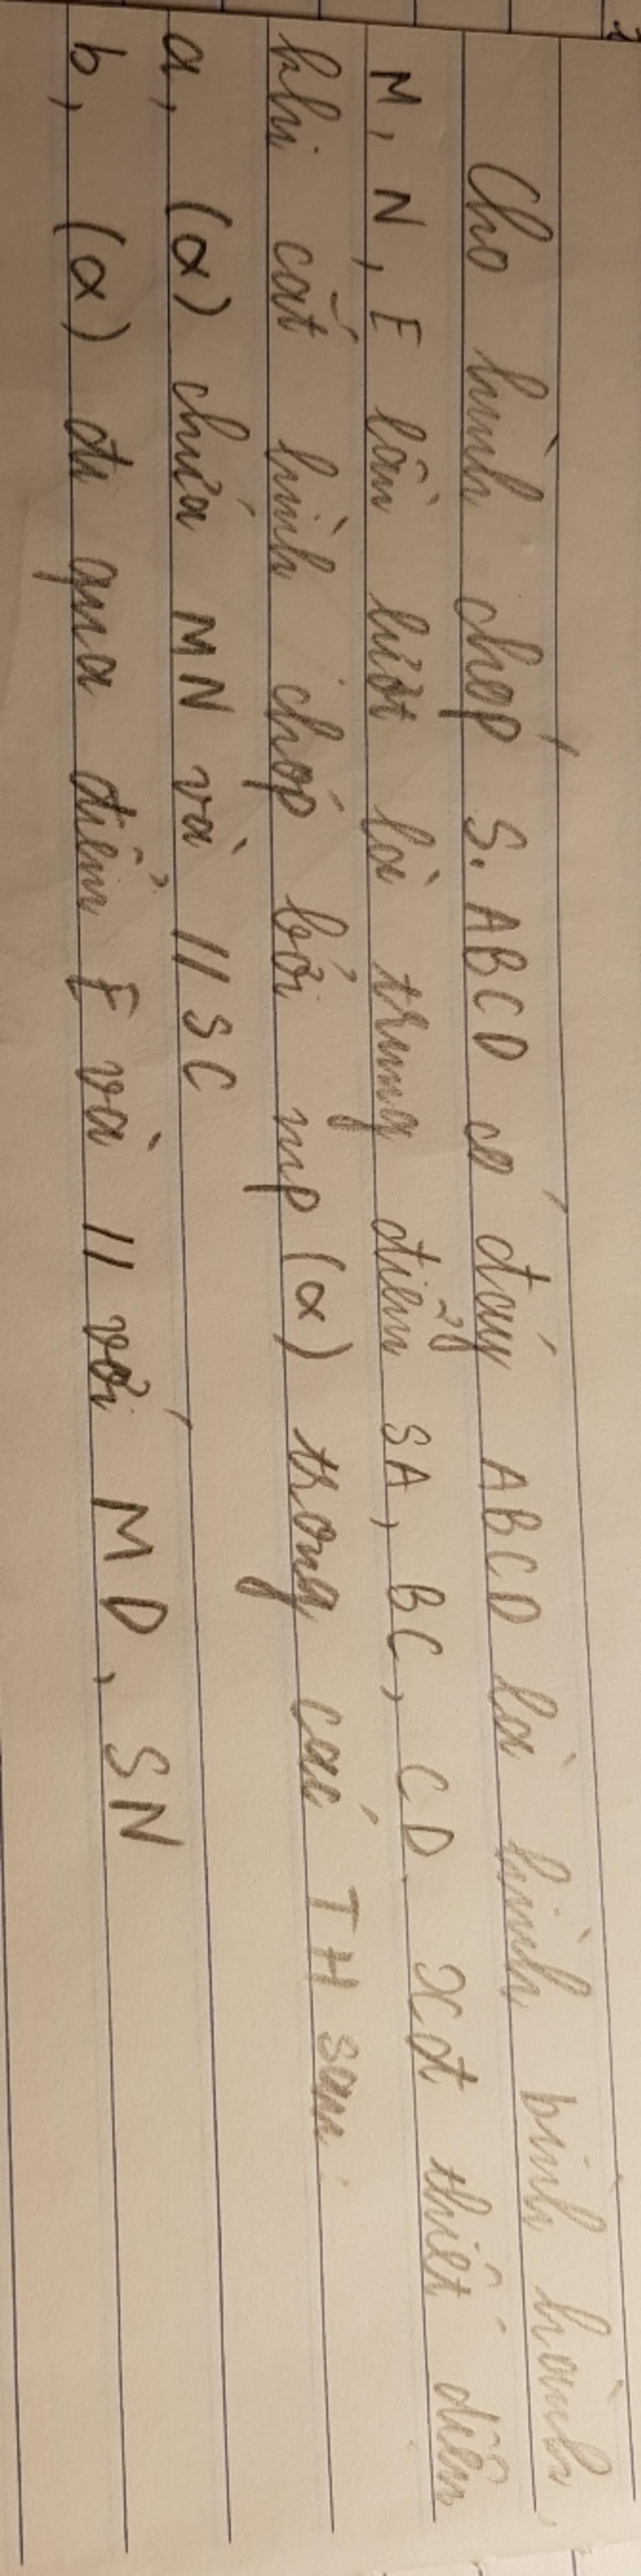 Cho hình chóp S.ABCD có đáy ABCD là hình bình hành,
M, N, E lần lượt là trung điểm SA, BC, CD. xđ thiết diện
khi cắt hình chóp bởi mp (α) trong các TH sau:
a, (α) chứa MN và // SC
b, (α) đi qua điểm E và // với MD, SN